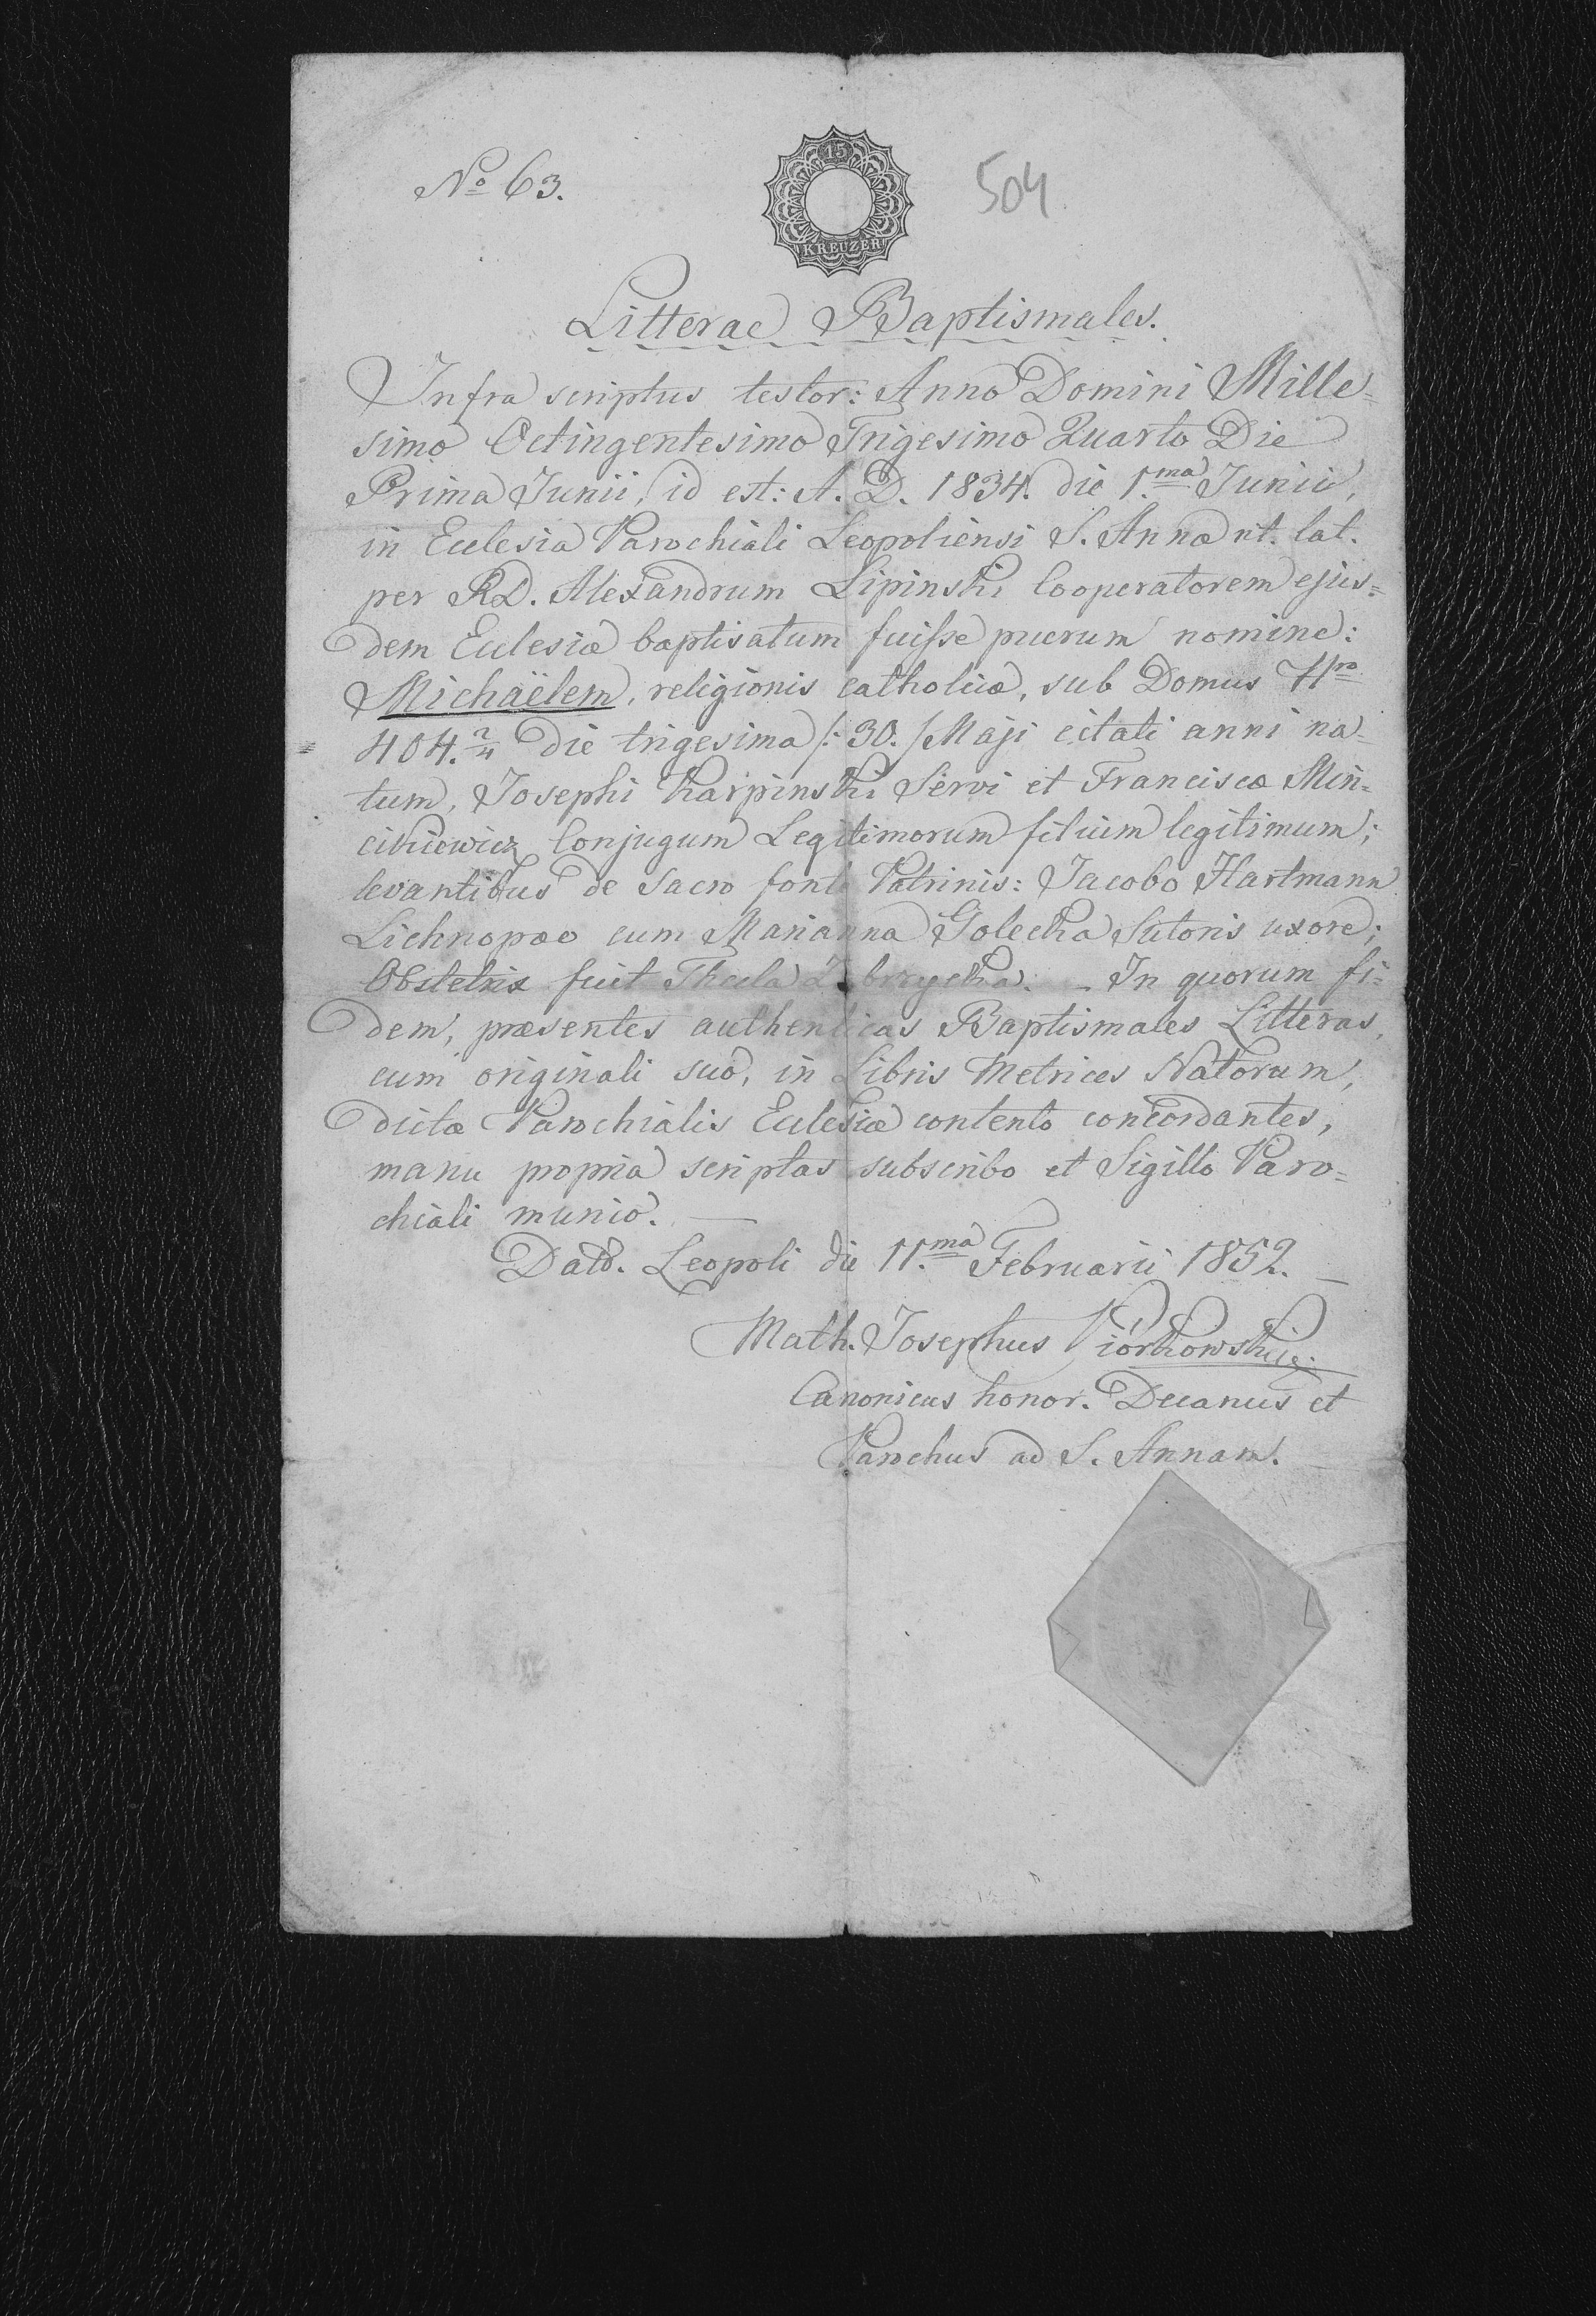 No 63.
15
KREUZER
504
Litterae Baptismales.
Infra scriptus testor: Anno Domini Mille=
simo Octingentesimo Trigesimo Quarto Die
Prima Junii, id est: A. D. 1834. die 1.ma Junii,
in Ecclesia Parochiali Leopoliensi S. Annæ rt. lat.
per RD. Alexandrum Lipinski Cooperatorem ejus=
dem Ecclesiæ baptisatum fuisse puerum nomine:
Michaëlem, religionis catholicæ, sub Domus Nro
404. 2/4 Die trigesima /: 30. / Maji citati anni na=
tum, Josephi Karpinski Servi et Franciscæ Min=
cikiewicz Conjugum Legitimorum filium legitimum;
levantibus de Sacro fonte Patrinis: Jacobo Hartmann
Lichnopæo cum Marianna Golecka Sutoris uxore;
Obstetrix fuit Thecla. - In quorum fi=
dem, præsentes authenticas Baptismales Litteras,
cum originali suo, in Libris Metrices Natorum,
dictæ Parochialis Ecclesiæ contento concordantes,
manu propria scriptas subscribo et Sigillo Paro=
chiali munio. —
Dato. Leopoli die 11.ma Februarii 1852. —
Math. Josephus Piórkowski
Canonicus honor. Decanus et
Parochus ad S. Annam.